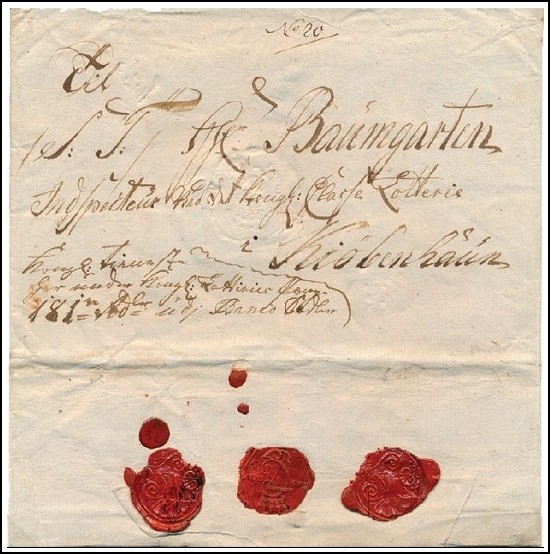 No 20
Til
S: T: Hr Baumgarten
Indspecteur ved det Kongl: Classe Lotterie
i Kiöbenhaun
Kongl: tieneste
under Kongl: Lotteries
181 rdlr udj Banco Sedler